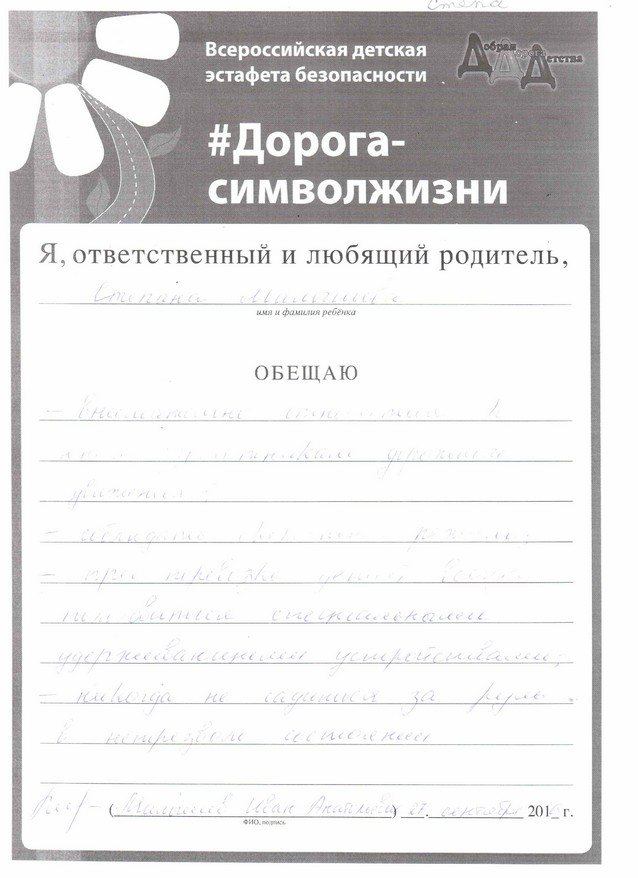 Стёпа
Всероссийская детская
эстафета безопасности
Добрая Дорога Детства
#Дорога-
символжизни
Я, ответственный и любящий родитель,
Степана
имя и фамилия ребёнка
ОБЕЩАЮ
- внимательно
движения;
- соблюдать
- при перевозке детей
специальными
удерживающими устройствами;
- никогда не садиться за руль
в нетрезвом состоянии
( Иван ) 27. сентября 2016 г.
ФИО, подпись